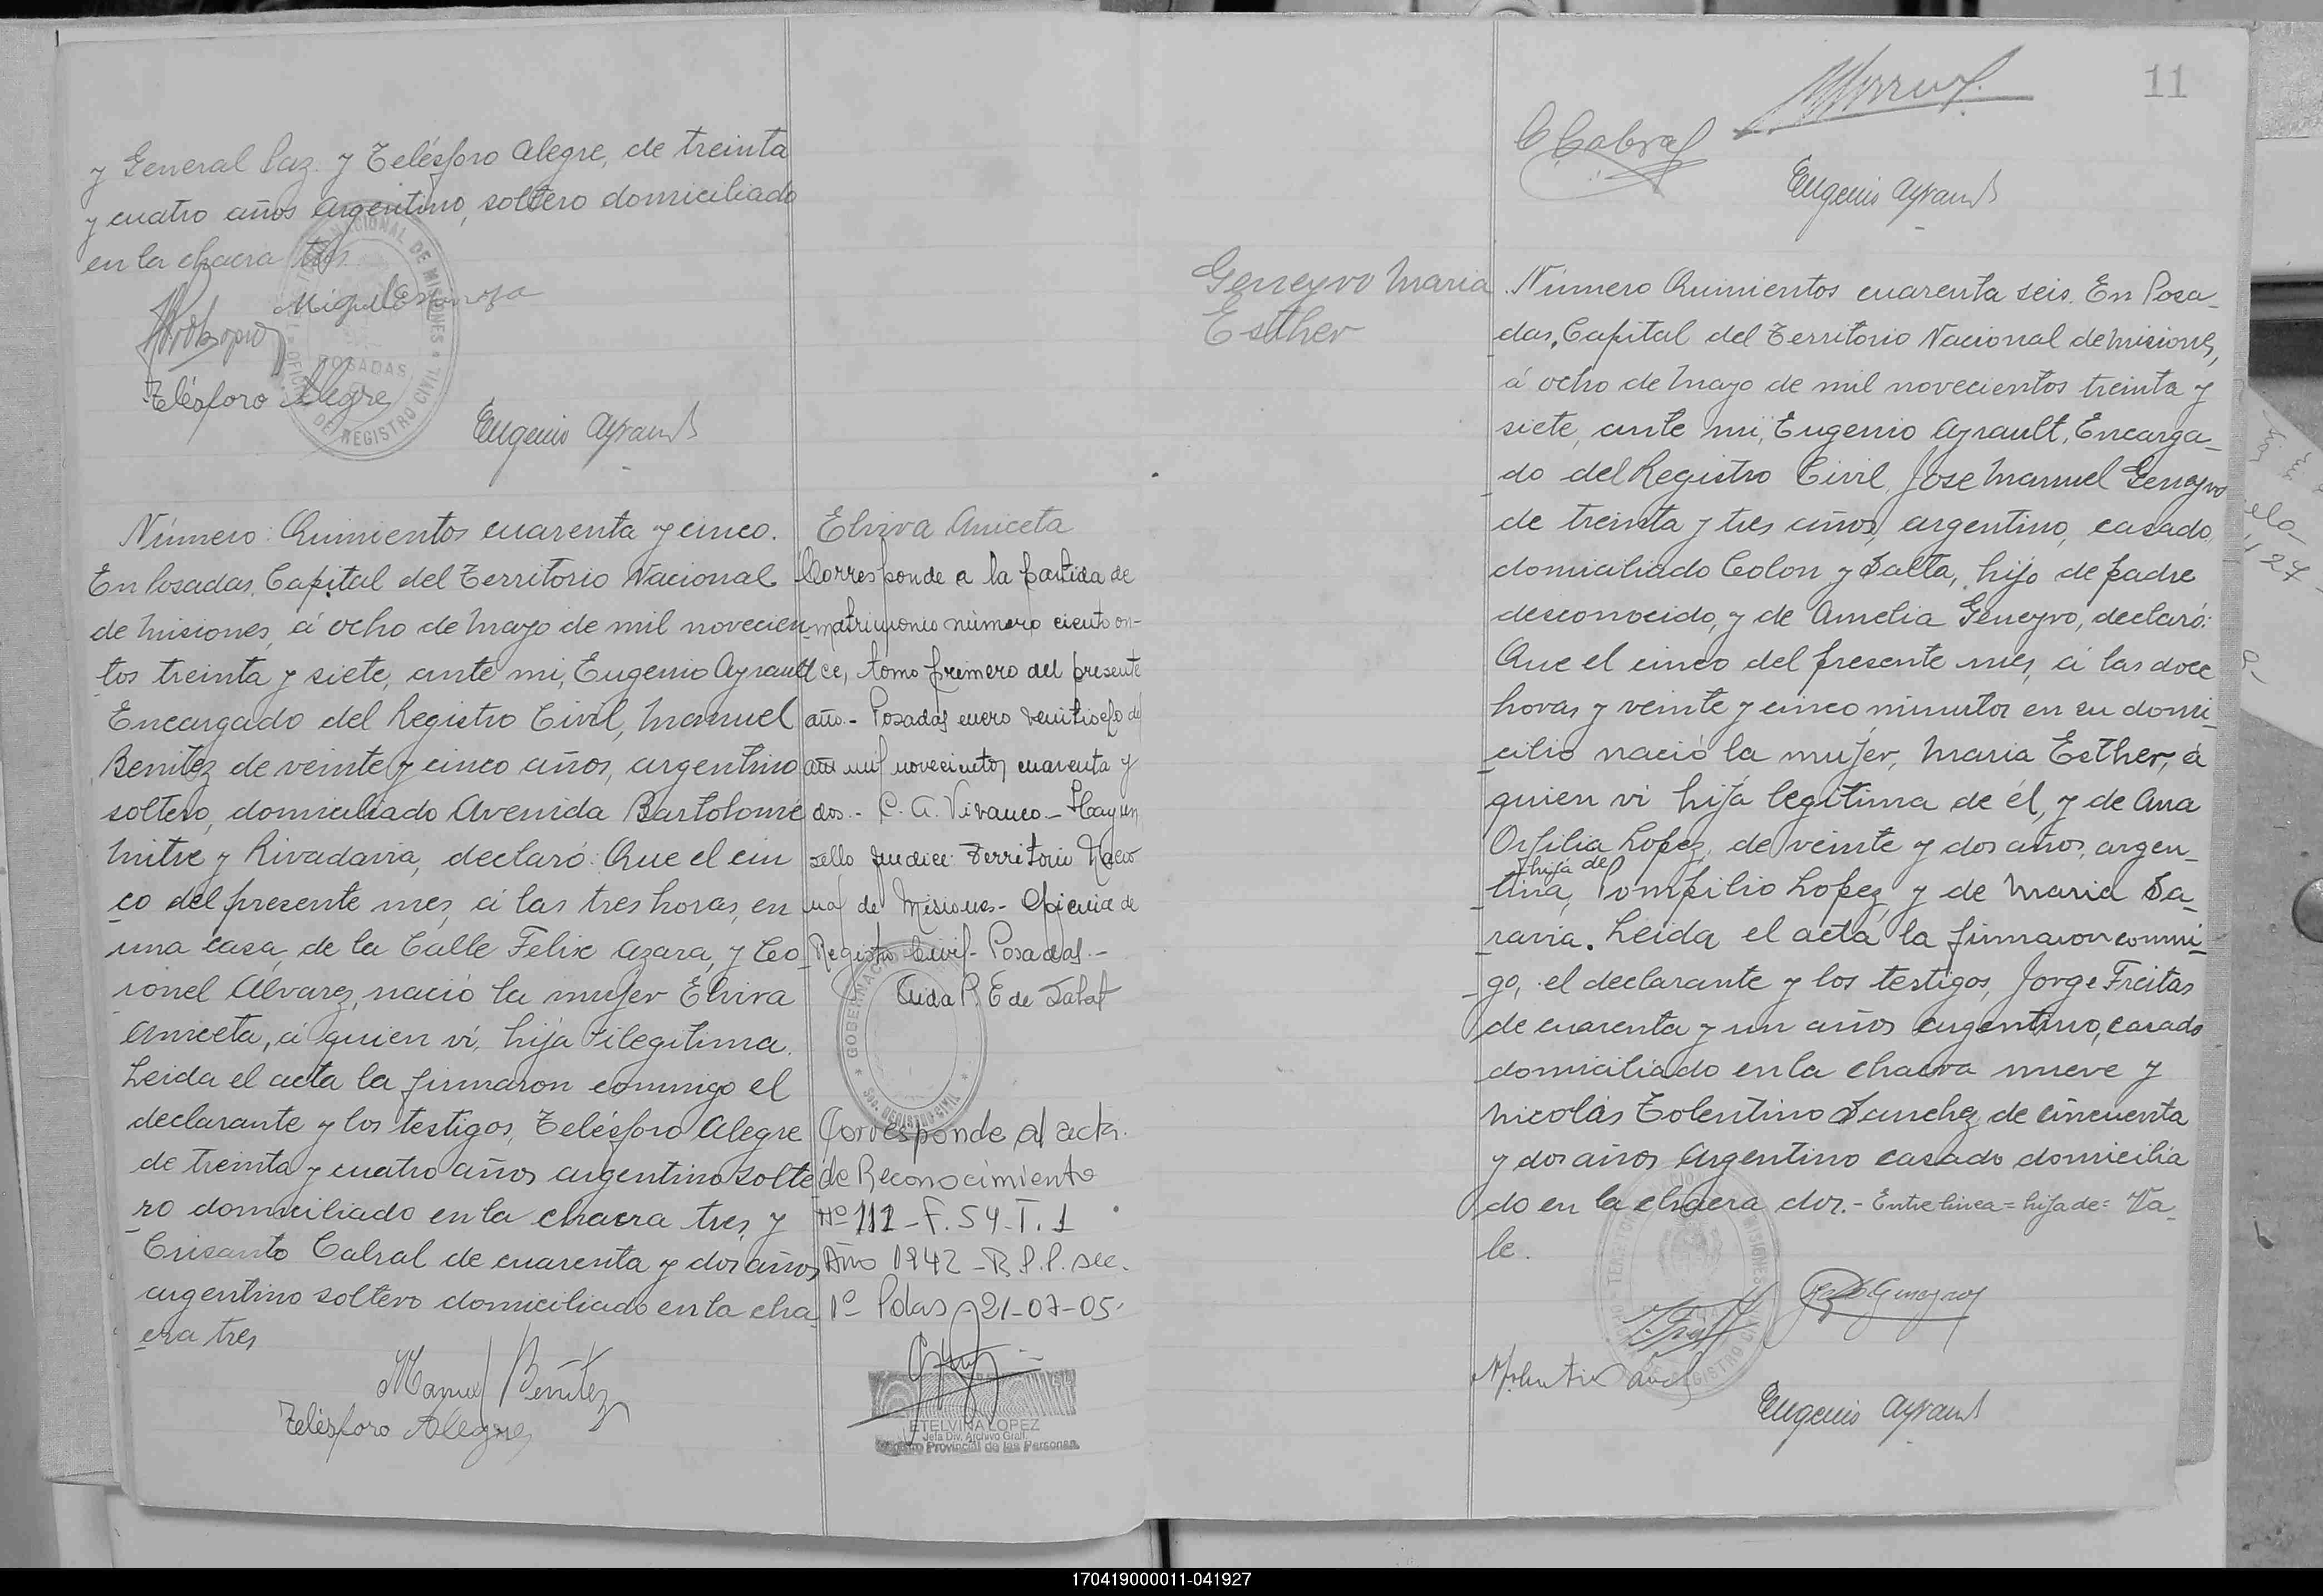 y General Paz y Telésforo Alegre, de treinta
y cuatro años Argentino, soltero domiciliado
en la chacra tres
Telésforo Alegre
Eugenio Ayrault
POSADAS
Número: Quinientos cuarenta y cinco.
En Posadas, Capital del Territorio Nacional
de Misiones, á ocho de Mayo de mil novecien
tos treinta y siete, ante mi, Eugenio Ayrault
Encargado del Registro Civil, Manuel
Benitez de veinte y cinco años, argentino
soltero, domiciliado Avenida Bartolome
Mitre y Rivadavia, declaró: Que el cin
co del presente mes, á las tres horas, en
una casa, de la Calle Felix Azara, y Co
ronel Alvarez, nació la mujer Elvira
Aniceta, á quien vi, hija ilegitima.
Leida el acta la firmaron conmigo el
declarante y los testigos, Telésforo Alegre
de treinta y cuatro años argentino solte
ro domiciliado en la chacra tres, y
Crisanto Cabral de cuarenta y dos años
argentino soltero domiciliado en la cha
cra tres
Manuel Benitez
Telésforo Alegre
Elvira Aniceta
Corresponde a la partida de
matrimonio número ciento on-
ce, tomo primero del presente
año.- Posadas enero veintiseis de
año mil novecientos cuarenta y
dos.- C. A. Vivanco.- Hay un
sello que dice: Territorio Nacio
nal de Misiones- Oficina de
Registro Civil- Posadas.-
Aida P. E de
GOBERNACION
Sec. REGISTRO CIVIL
Corresponde al acta
de Reconocimiento
Nº 112 - F. 54 - T. 1
Año 1942 - R.P.P. sec.
1º Pdas - 21-07-05
ETELVINA LOPEZ
Jefa Div. Archivo Gral.
Registro Provincial de las Personas
11
C Cabral
Eugenio Ayrault
Geneyro Maria
Esther
Número Quinientos cuarenta seis. En Posa
das, Capital del Territorio Nacional de Misiones,
á ocho de Mayo de mil novecientos treinta y
siete, ante mi, Eugenio Ayrault, Encarga
do del Registro Civil, Jose Manuel Geneyro
de treinta y tres años, argentino, casado,
domiciliado Colon y Salta, hijo de padre
desconocido, y de Amelia Geneyro, declaró:
Que el cinco del presente mes, á las doce
horas y veinte y cinco minutos en su domi
cilio nació la mujer, Maria Esther, á
quien vi hija legitima de él, y de Ana
Orfilia Lopez, de veinte y dos años, argen
hija de
tina, Pompilio Lopez, y de Maria Sa
ravia. Leida el acta la firmaron conmi
go, el declarante y los testigos, Jorge Freitas
de cuarenta y un años argentino, casado
domiciliado en la chacra nueve y
Nicolás Tolentino Sanchez de cincuenta
y dos años Argentino casado domicilia
do en la chacra dos.- Entre linea = hija de = Va
le.
Eugenio Ayrault
170419000011-041927